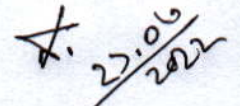 27.06
2022